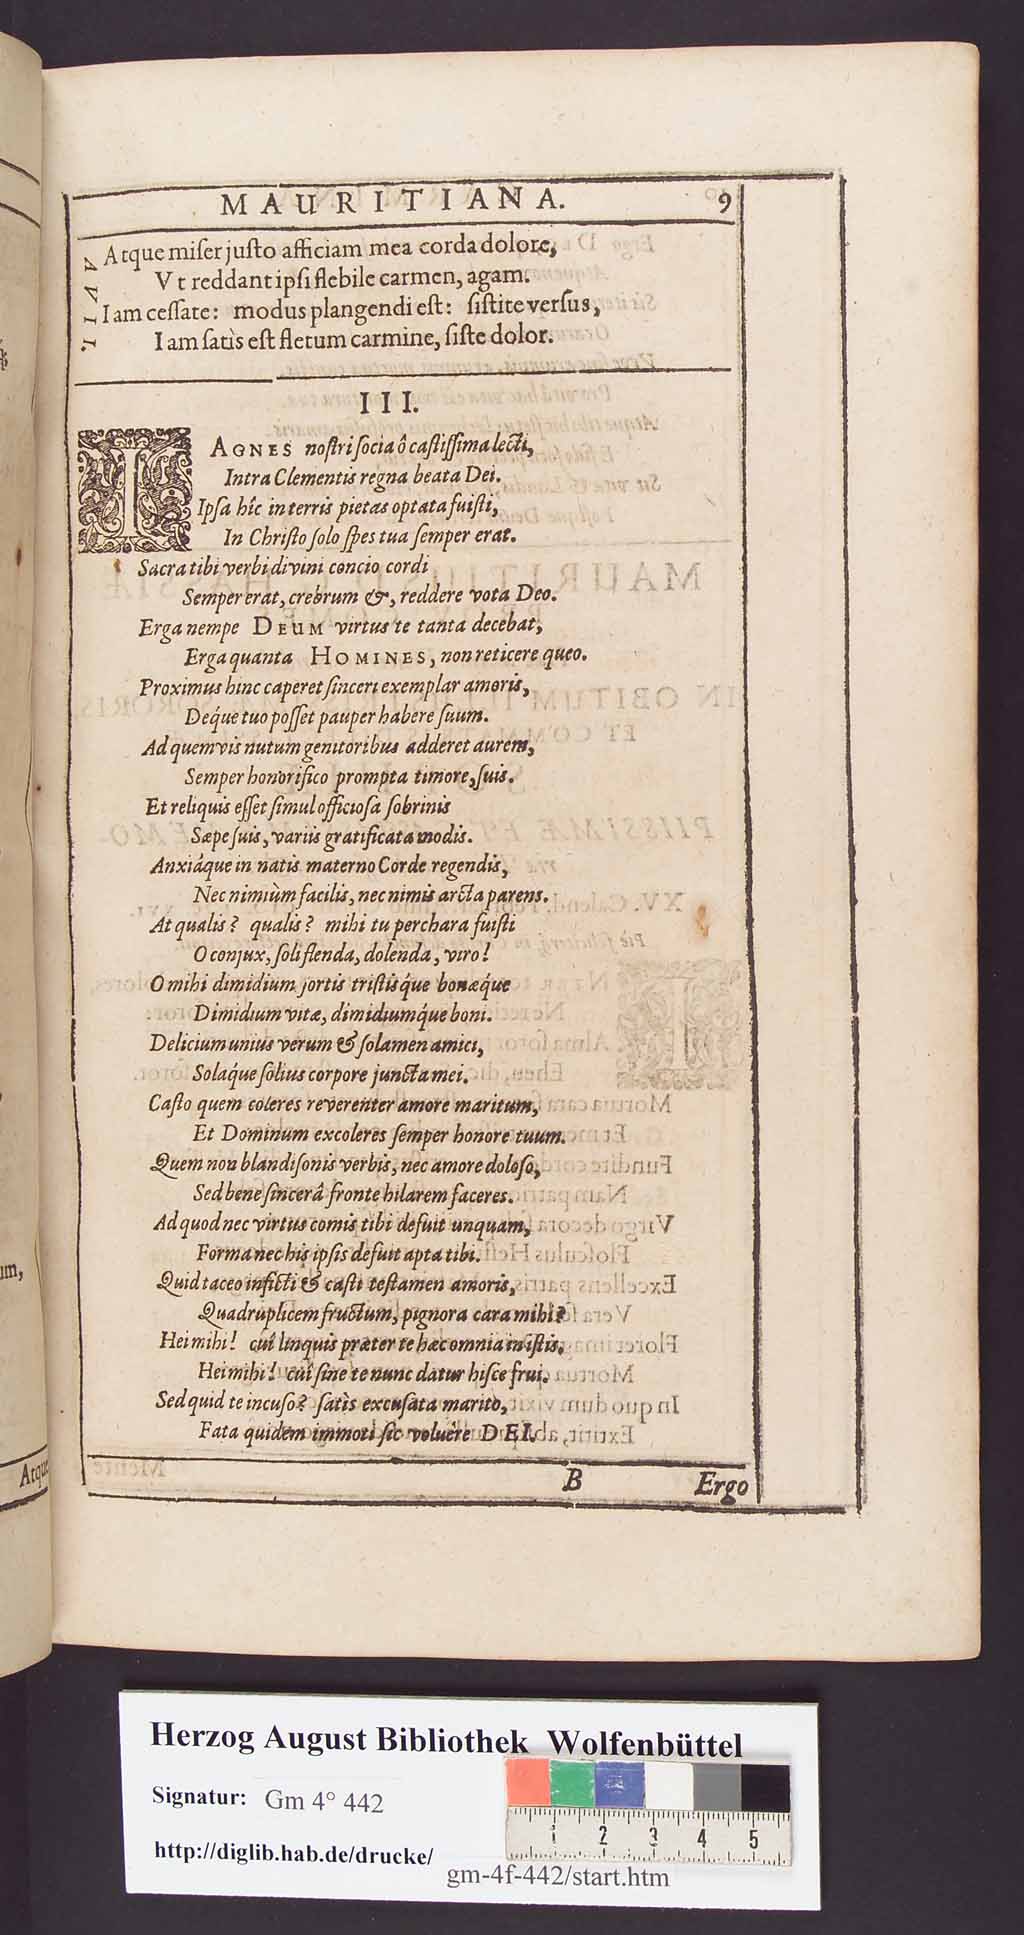 MAURITIANA. 9
Atque miser justo afficiam mea corda dolore,
Vt reddant ipsi flebile carmen, agam.
Iam cessate: modus plangendi est: sistite versus,
Iam satìs est fletum carmine, siste dolor.
III.
AGNES nostri socia ô castissima lecti,
Intra Clementis regna beata Dei.
Ipsa hîc in terris pietas optata fuisti,
In Christo solo spes tua semper erat.
Sacra tibi verbi divini concio cordi
Semper erat, crebrum &, reddere vota Deo.
Erga nempe DEUM virtus te tanta decebat,
Erga quanta HOMINES, non reticere queo.
Proximus hinc caperet sinceri exemplar amoris,
Déque tuo posset pauper habere suum.
Ad quemvis nutum genitoribus adderet aurem,
Semper honorifico prompta timore, suis.
Et reliquis esset simul officiosa sobrinis
Sæpe suis, variis gratificata modis.
Anxiáque in natis materno Corde regendis,
Nec nimiùm facilis, nec nimis arcta parens.
At qualis? qualis? mihi tu perchara fuisti
O conjux, soli flenda, dolenda, viro!
O mihi dimidium sortis tristisque bonæque
Dimidium vitæ, dimidiumque boni.
Delicium unius verum & solamen amici,
Soláque solius corpore juncta mei.
Casto quem coleres reverenter amore maritum,
Et Dominum excoleres semper honore tuum.
Quem non blandisonis verbis, nec amore doloso,
Sed bene sincerâ fronte hilarem faceres.
Ad quod nec virtus comis tibi defuit unquam,
Forma nec his ipsis defuit apta tibi.
Quid taceo inficti & casti testamen amoris,
Quadruplicem fructum, pignora cara mihi?
Hei mihi! cuî linquis præter te hæc omnia in istis,
Hei mihi! cuî sine te nunc datur hisce frui.
Sed quid te incuso? satìs excusata marito,
Fata quidem immoti sic voluêre DEI.
B Ergo
um,
Atque
Herzog August Bibliothek Wolfenbüttel
Signatur: Gm 4° 442
http://diglib.hab.de/drucke/
gm-4f-442/start.htm
1 2 3 4 5